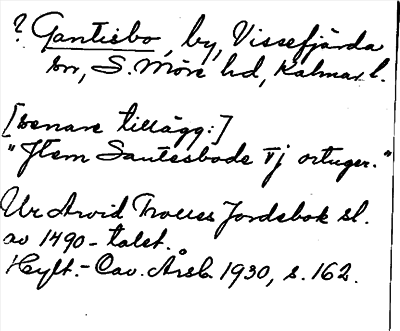 ? Gantesbo, by, Vissefjärda
sn, S. Möre hd, Kalmar l.
[Senare tillägg:]
"Jtem Santesbode vj ortuger."
Ur Arvid Trolles Jordebok sl.
av 1490-talet.
Hylt.-Cav. Årsb. 1930, s. 162.